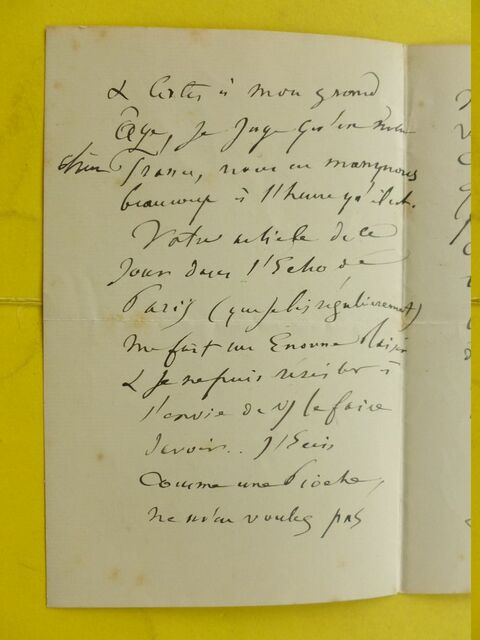 & certes à mon grand
âge, je juge qu'en notre
chère France, nous en manquons
beaucoup à l'heure qu'il est.
Votre article de ce
jour dans l'Echo de
Paris (que je lis régulièrement)
me fait un Enorme plaisir
& je ne puis résister à
l'envie de vs le faire
savoir.. J'Ecris
comme une Pioche,
ne m'en voulez pas